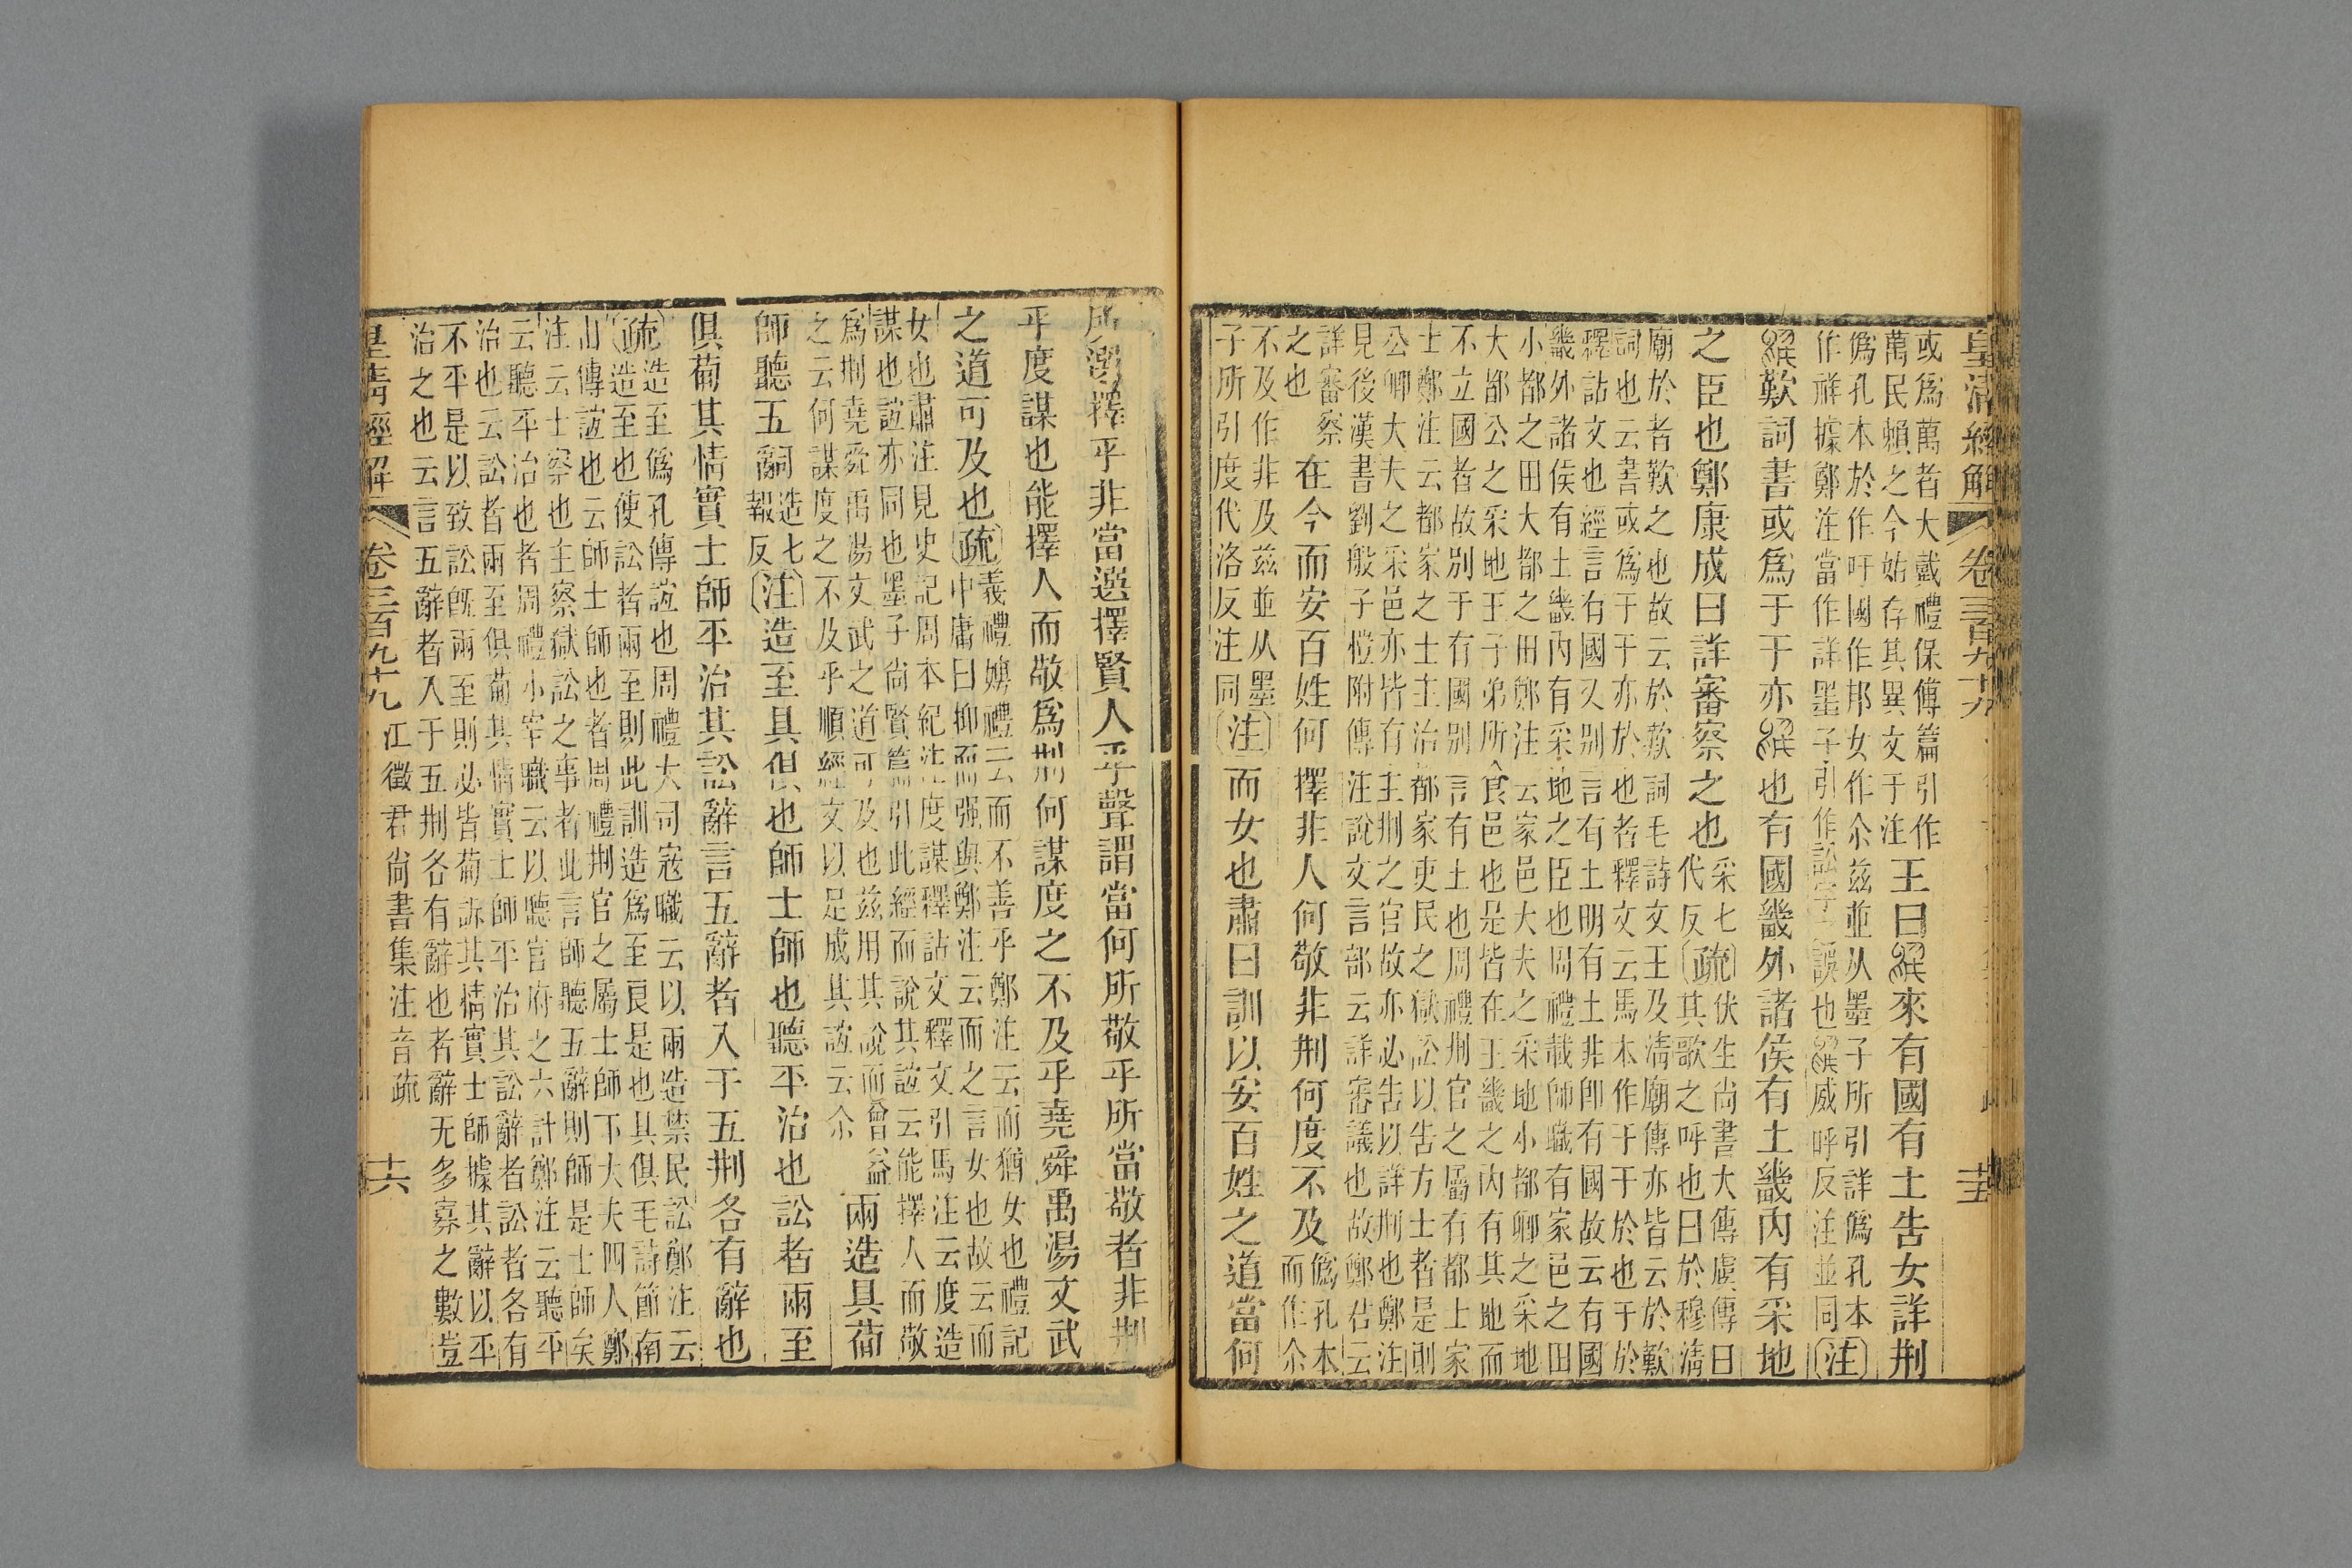 皇清經解 卷三百九十九 十五
或爲萬者大戴禮保傅篇引作
萬民賴之今姑存其異文于注
王曰來有國有土告女詳刑
僞孔本於作吁國作邦女作尒兹並从墨子所引詳僞孔本
作祥據鄭注當作詳墨子引作訟字之誤也威呼反注並同
注
歎詞書或爲于于亦也有國畿外諸侯有土畿内有采地
之臣也鄭康成曰詳審察之也
采七
代反
疏
伏生尚書大傳虞傳曰
其歌之呼也曰於穆淸
廟於者歎之也故云於歎詞毛詩文王及淸廟傳亦皆云於歎
詞也云書或爲于于亦於也者釋文云馬本作于于於也于於
釋詁文也經言有國又别言有土明有土非卽有國故云有國
畿外諸侯有土畿内有采地之臣也周禮載師職有家邑之田
小都之田大都之田鄭注云家邑大夫之采地小都卿之采地
大都公之采地王子弟所食邑也是皆在王畿之内有其地而
不立國者故别于有國别言有土也周禮刑官之屬有都士家
士鄭注云都家之士主治都家吏民之獄訟以告方士者是則
公卿大夫之采邑亦皆有主刑之官故亦必告以詳刑也鄭注
見後漢書劉般子愷附傳注說文言部云詳審議也故鄭君云
詳審察
之也
在今而安百姓何擇非人何敬非刑何度不及
僞孔本
而作尒
不及作非及兹並从墨
子所引度代洛反注同
注
而女也肅曰訓以安百姓之道當何
所選擇乎非當選擇賢人乎聲謂當何所敬乎所當敬者非刑
乎度謀也能擇人而敬爲刑何謀度之不及乎堯舜禹湯文武
之道可及也
疏
義禮嫂禮云而不善乎鄭注云而猶女也禮記
中庸曰抑而强與鄭注云而之言女也故云而
女也肅注見史記周本紀注度謀釋詁文釋文引馬注云度造
謀也誼亦同也墨子尙賢篇引此經而說其誼云能擇人而敬
爲刑堯舜禹湯文武之道可及也兹用其說而曾益
之云何謀度之不及乎順經文以足成其誼云尒
兩造具葡
師聽五辭
造七
報反
注
造至具俱也師士師也聽平治也訟者兩至
俱葡其情實士師平治其訟辭言五辭者入于五刑各有辭也
疏
造至僞孔傳誼也周禮大司寇職云以兩造禁民訟鄭注云
造至也使訟者兩至則此訓造爲至良是也具俱毛詩節南
山傳誼也云師士師也者周禮刑官之屬士師下大夫四人鄭
注云士察也主察獄訟之事者此言師聽五辭則師是士師矣
云聽平治也者周禮小宰職云以聽官府之六計鄭注云聽平
治也云訟者兩至俱葡其情實士師平治其訟辭者訟者各有
不平是以致訟旣兩至則必皆葡訴其情實士師據其辭以平
治之也云言五辭者入于五刑各有辭也者辭无多寡之數豈
皇清經解 卷三百九十九 江徵君尙書集注音疏 十六